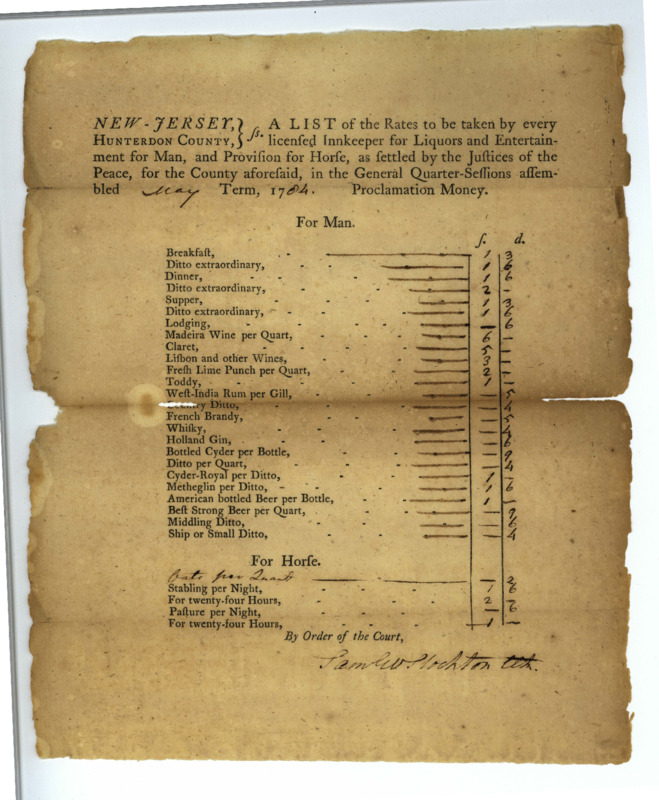 NEW-JERSEY, } ſs. A LIST of the Rates to be taken by every
HUNTERDON COUNTY, } licenſed Innkeeper for Liquors and Entertain-
ment for Man, and Proviſion for Horſe, as ſettled by the Juſtices of the
Peace, for the County aforeſaid, in the General Quarter-Seſſions aſſem-
bled May Term, 1784. Proclamation Money.
For Man.
ſ. d.
Breakfaſt, - - 1 3
Ditto extraordinary, - 1 6
Dinner, - - 1 6
Ditto extraordinary, - - 2 -
Supper, - - - 1 3
Ditto extraordinary, - - 1 6
Lodging, - - - — 6
Madeira Wine per Quart, - - 6 -
Claret, - - - 5 —
Liſbon and other Wines, - - 3 —
Freſh Lime Punch per Quart, - - 2 -
Toddy, - - - 1 -
Weſt-India Rum per Gill, - - — 5
Ditto, - - — 4
French Brandy, - - - — 5
Whiſky, - - - — 4
Holland Gin, - - - — 6
Bottled Cyder per Bottle, - - — 9
Ditto per Quart, - - - — 4
Cyder-Royal per Ditto, - - 1 -
Metheglin per Ditto, - - - 1 6
American bottled Beer per Bottle, - - 1 -
Beſt Strong Beer per Quart, - - — 9
Middling Ditto, - - — 6
Ship or Small Ditto, - - — 4
For Horſe.
Oats per Quart — 2
Stabling per Night, - - - 1 6
For twenty-four Hours, - - - 2 -
Paſture per Night, - - - — 6
For twenty-four Hours, - - - 1 —
By Order of the Court,
Saml W Stockton